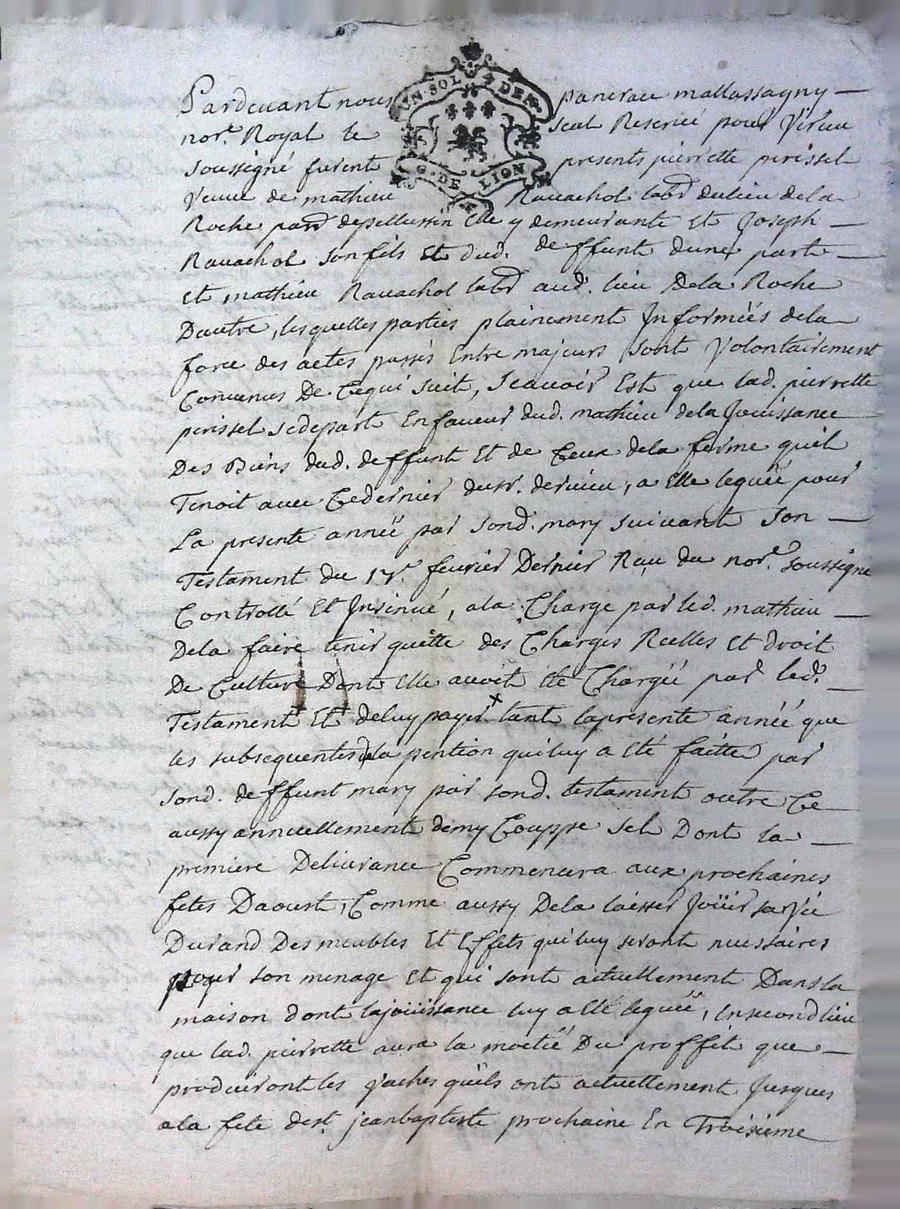 Pardevant nous pancrace mallassagny
UN·SOL 4 DEN
G·DE LION
nore. Royal le seul Reservé pour Virieu
soussigné furent presents pierrette perissel
Veuve de mathieu Ravachol labd. dulieu dela
Roche pard. depellussin Elle y demeurante Et Joseph
Ravachol son fils Et dud. deffunt dune part
Et mathieu Ravachol labd aud. lieu Dela Roche
Dautre, lesquelles parties plainement Informéés dela
force des actes passés Entre majeurs sont Volontairement
Convenus De Cequi suit, scavoir Est que lad. pierrette
perissel sedepart Enfaveur dud. mathieu dela Jouissance
Des Biens dud. deffunt Et de Ceux dela ferme quil
Tenoit avec Cedernier dusr. devirieu, a Elle leguéé pour
La presente année par sond. mary suivant son
Testament du 17e. fevrier Dernier Reçu du nore. soussigné
Controllé Et Insinué, ala Charge par led. mathieu
Dela faire tenir quitte des Charges Reelles Et droit
De Culture Dont Elle avoit été Chargéé par led.
Testament Et deluy payer x tant lapresente annéé que
les subsequentes la pention quiluy a été faitte par
sond. deffunt mary par sond. testament outre Ce
aussy annuellement demy Couppe sel Dont la
premiere Delivrance Commencera aux prochaines
fetes Daoust, Comme aussy Dela laisser Joüir savie
Durand Des meubles Et Effets quiluy seront necessaires
pour son menage Et qui sont actuellement Dans la
maison dont lajoüissance luy a été leguéé, Ensecond lieu
que lad. pierrette aura la moetié Du proffit que
produiront les vaches quils ont actuellement Jusques
ala fete dest. jeanbaptiste prochaine En Troisieme